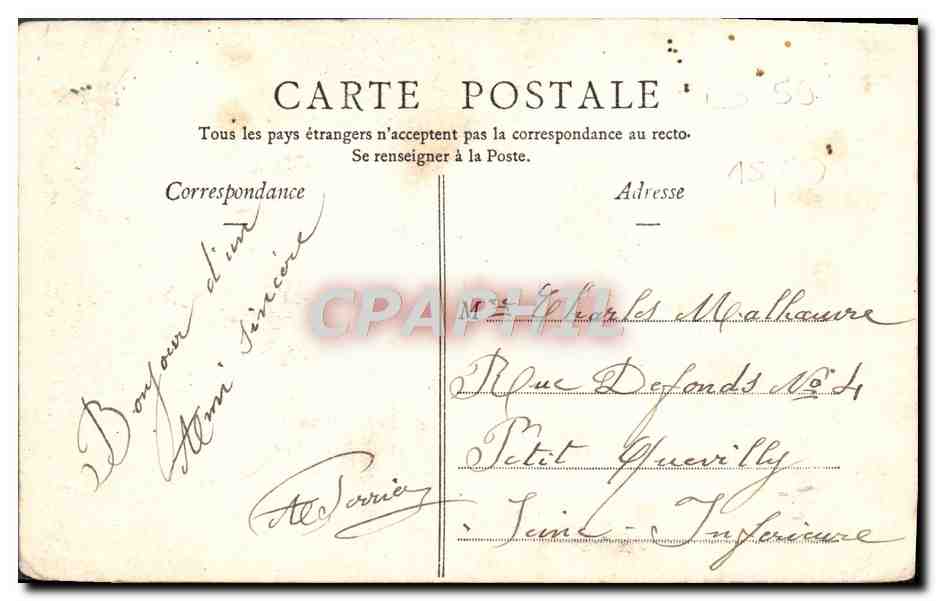 CARTE POSTALE
Tous les pays étrangers n'acceptent pas la correspondance au recto.
Se renseigner à la Poste.
Correspondance
Adresse
Bonjour d'un
Ami sincère
Mr Charles Malhauvre
Rue Defonds No 4
Petit Quevilly
Seine-Inférieure
CPAPHIL